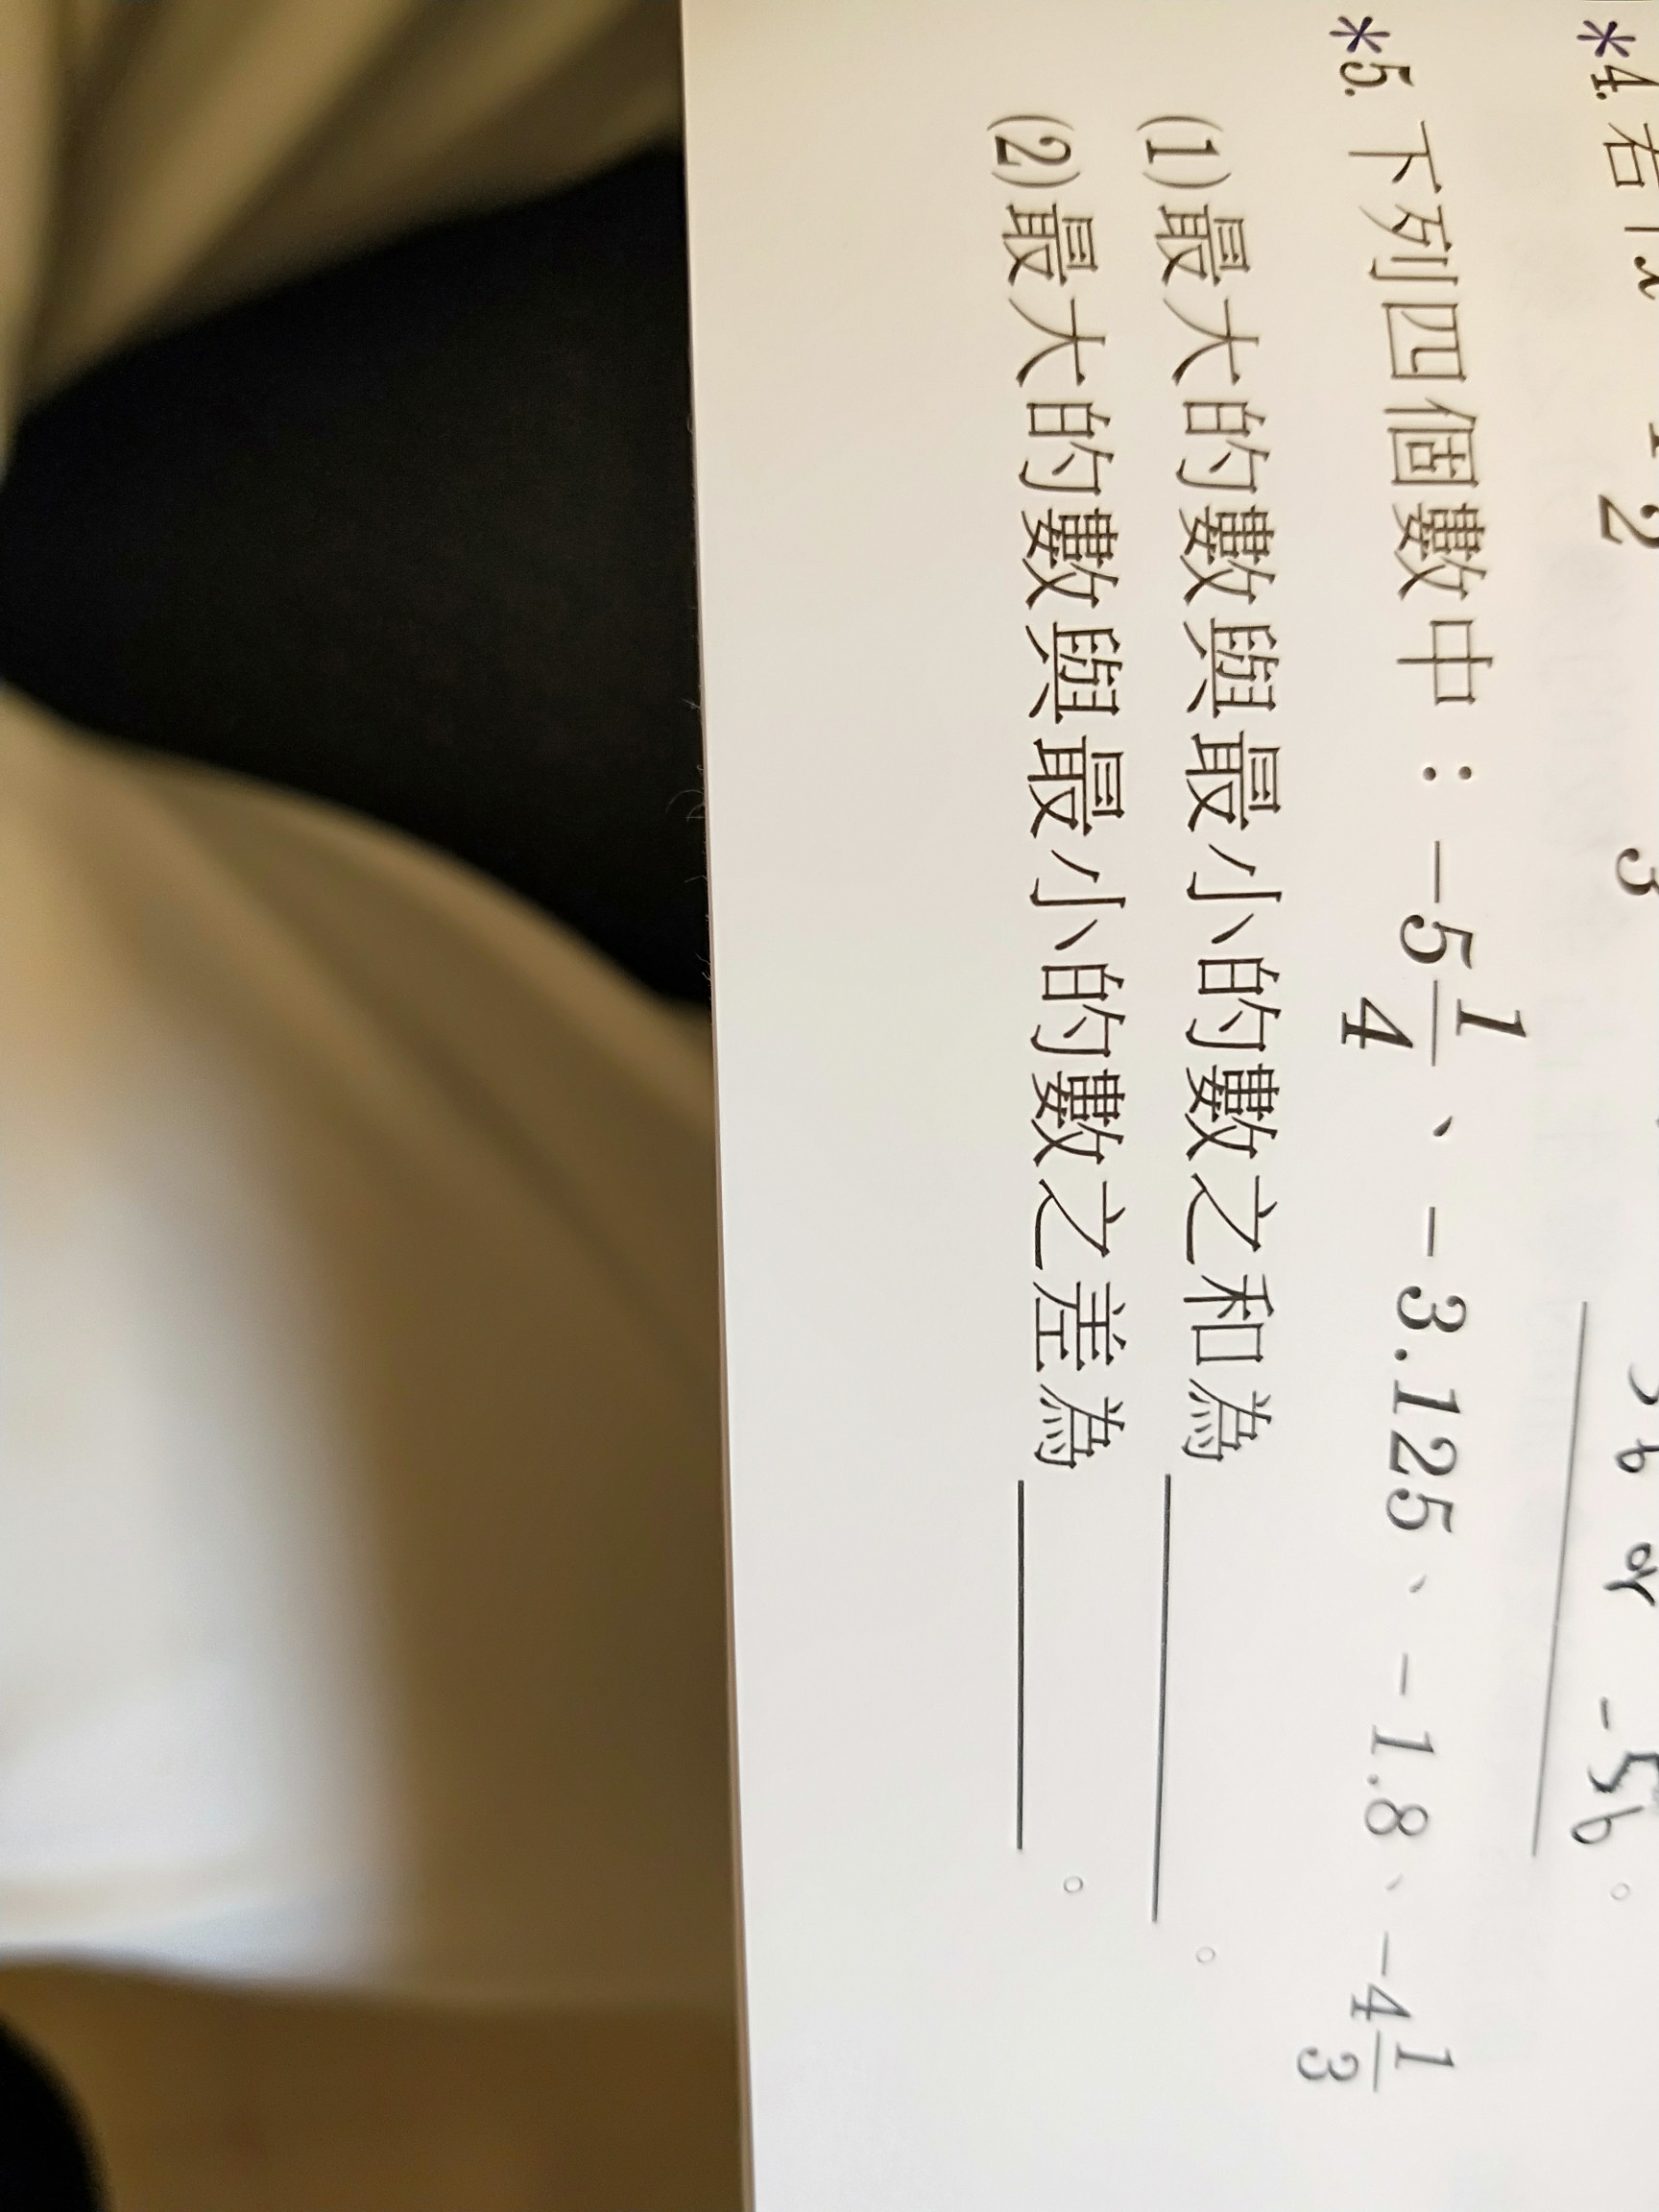 *4. 若
*5. 下列四個數中：-5 1/4、-3.125、-1.8、-4 1/3
(1) 最大的數與最小的數之和為＿＿＿＿。
(2) 最大的數與最小的數之差為＿＿＿＿。